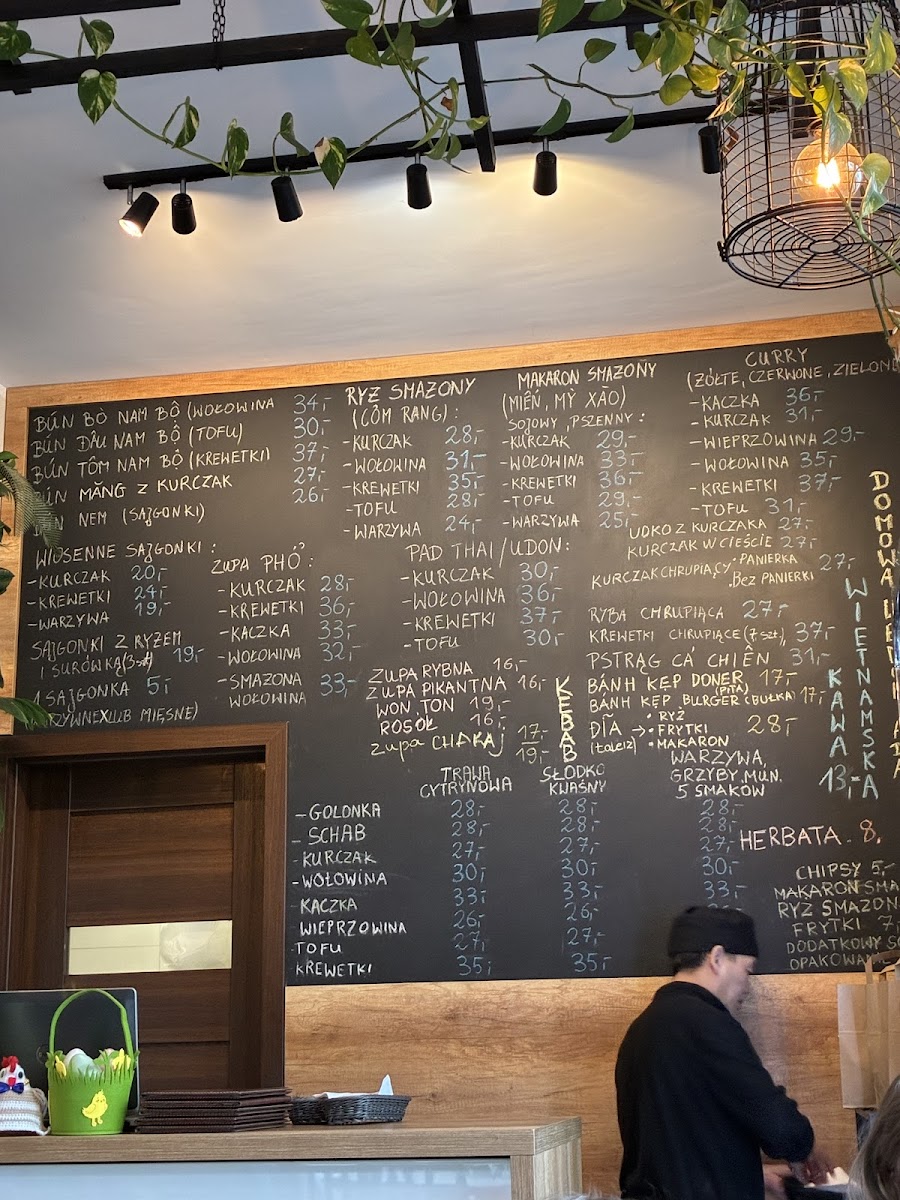 BÚN BÒ NAM BỘ (WOŁOWINA 34,-
BÚN DÂU NAM BỘ (TOFU) 30,-
BÚN TÔM NAM BỘ (KREWETKI) 37,-
BÚN MĂNG Z KURCZAK 27,-
NEM (SAJGONKI) 26,-
WIOSENNE SAJGONKI :
-KURCZAK 20,-
-KREWETKI 24,-
-WARZYWA 19,-
SAJGONKI Z RYŻEM
I SURÓWKĄ (3szt) 19,-
1 SAJGONKA 5,-
MIĘSNE)
ZUPA PHỞ :
-KURCZAK 28,-
-KREWETKI 36,-
-KACZKA 33,-
-WOŁOWINA 32,-
-SMAZONA
WOŁOWINA 33,-
RYŻ SMAZONY
(CÔM RANG) :
-KURCZAK 28,-
-WOŁOWINA 31,-
-KREWETKI 35,-
-TOFU 28,-
-WARZYWA 24,-
MAKARON SMAZOŃY
(MIẾN, MỲ XÃO)
SOJOWY, PSZENNY :
-KURCZAK 29,-
-WOŁOWINA 33,-
-KREWETKI 36,-
-TOFU 29,-
-WARZYWA 25,-
PAD THAI / UDON :
-KURCZAK 30,-
-WOŁOWINA 36,-
-KREWETKI 37,-
-TOFU 30,-
ZUPA RYBNA 16,-
ZUPA PIKANTNA 16,-
WON TON 19,-
ROSÓŁ 16,-
ZUPA CHAKAJ 17,-
19,-
CURRY
(ŻÓŁTE, CZERWONE, ZIELONE
-KACZKA 36,-
-KURCZAK 31,-
-WIEPRZOWINA 29,-
-WOŁOWINA 35,-
-KREWETKI 37,-
-TOFU 31,-
UDKO Z KURCZAKA 27,-
KURCZAK W CIEŚCIE 27,-
KURCZAK CHRUPIĄCY • PANIERKA 27,-
• BEZ PANIERKI
RYBA CHRUPIĄCA 27,-
KREWETKI CHRUPIĄCE (7 szt), 37,-
PSTRĄG CÁ CHIÊN 31,-
KEBAB
BÁNH KẸP DONER 17,-
(PITA)
BÁNH KẸP BURGER (BUŁKA) 17,-
DĨA → • RYŻ
(talerz) • FRYTKI 28,-
• MAKARON
DOMOWA
WIETNAMSKA
KAWA 13,-
TRAWA
CYTRYNOWA
SŁODKO
KWAŚNY
WARZYWA,
GRZYBY MUN,
5 SMAKÓW
-GOLONKA 28,- 28,- 28,-
-SCHAB 28,- 28,- 28,-
-KURCZAK 27,- 27,- 27,-
-WOŁOWINA 30,- 30,- 30,-
-KACZKA 33,- 33,- 33,-
WIEPRZOWINA 26,- 26,-
TOFU 27,- 27,-
KREWETKI 35,- 35,-
HERBATA - 8,
CHIPSY 5,-
MAKARON SMA
RYŻ SMAZON
FRYTKI 7,
DODATKOWY SO
OPAKOWANIE